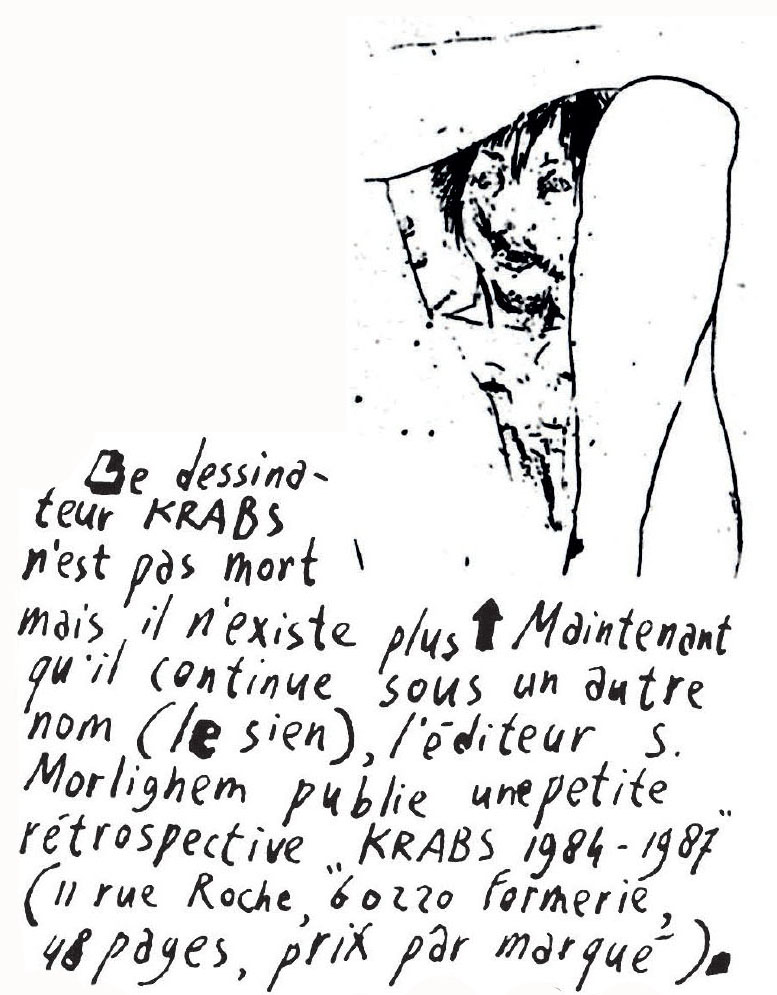 Le dessina-
teur KRABS
n'est pas mort
mais il n'existe plus ⬆ Maintenant
qu'il continue sous un autre
nom (le sien), l'éditeur S.
Morlighem publie une petite
rétrospective „KRABS 1984-1987"
(11 rue Roche, 60220 Formerie,
48 pages, prix par marqué).